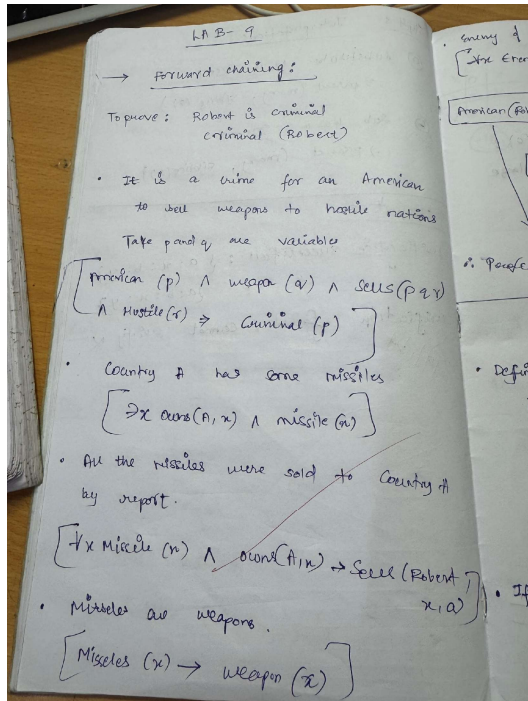 LAB-9
→ Forward chaining:
To prove: Robert is criminal
criminal (Robert)
• It is a crime for an American
to sell weapons to hostile nations
Take p and q are variables
American (p) ∧ weapon (q) ∧ sells (p q r)
∧ Hostile (r) ⇒ Criminal (p)
• Country A has some missiles
∃x owns (A, x) ∧ missile (x)
• All the missiles were sold to Country A
by report.
∀x Missile (x) ∧ owns (A, x) → Sell (Robert,
x, a)
• Missles are weapons.
[Missles (x) → weapon (x)]
• Enemy of
American (Ro
∴ Proofe
• Defi
• If